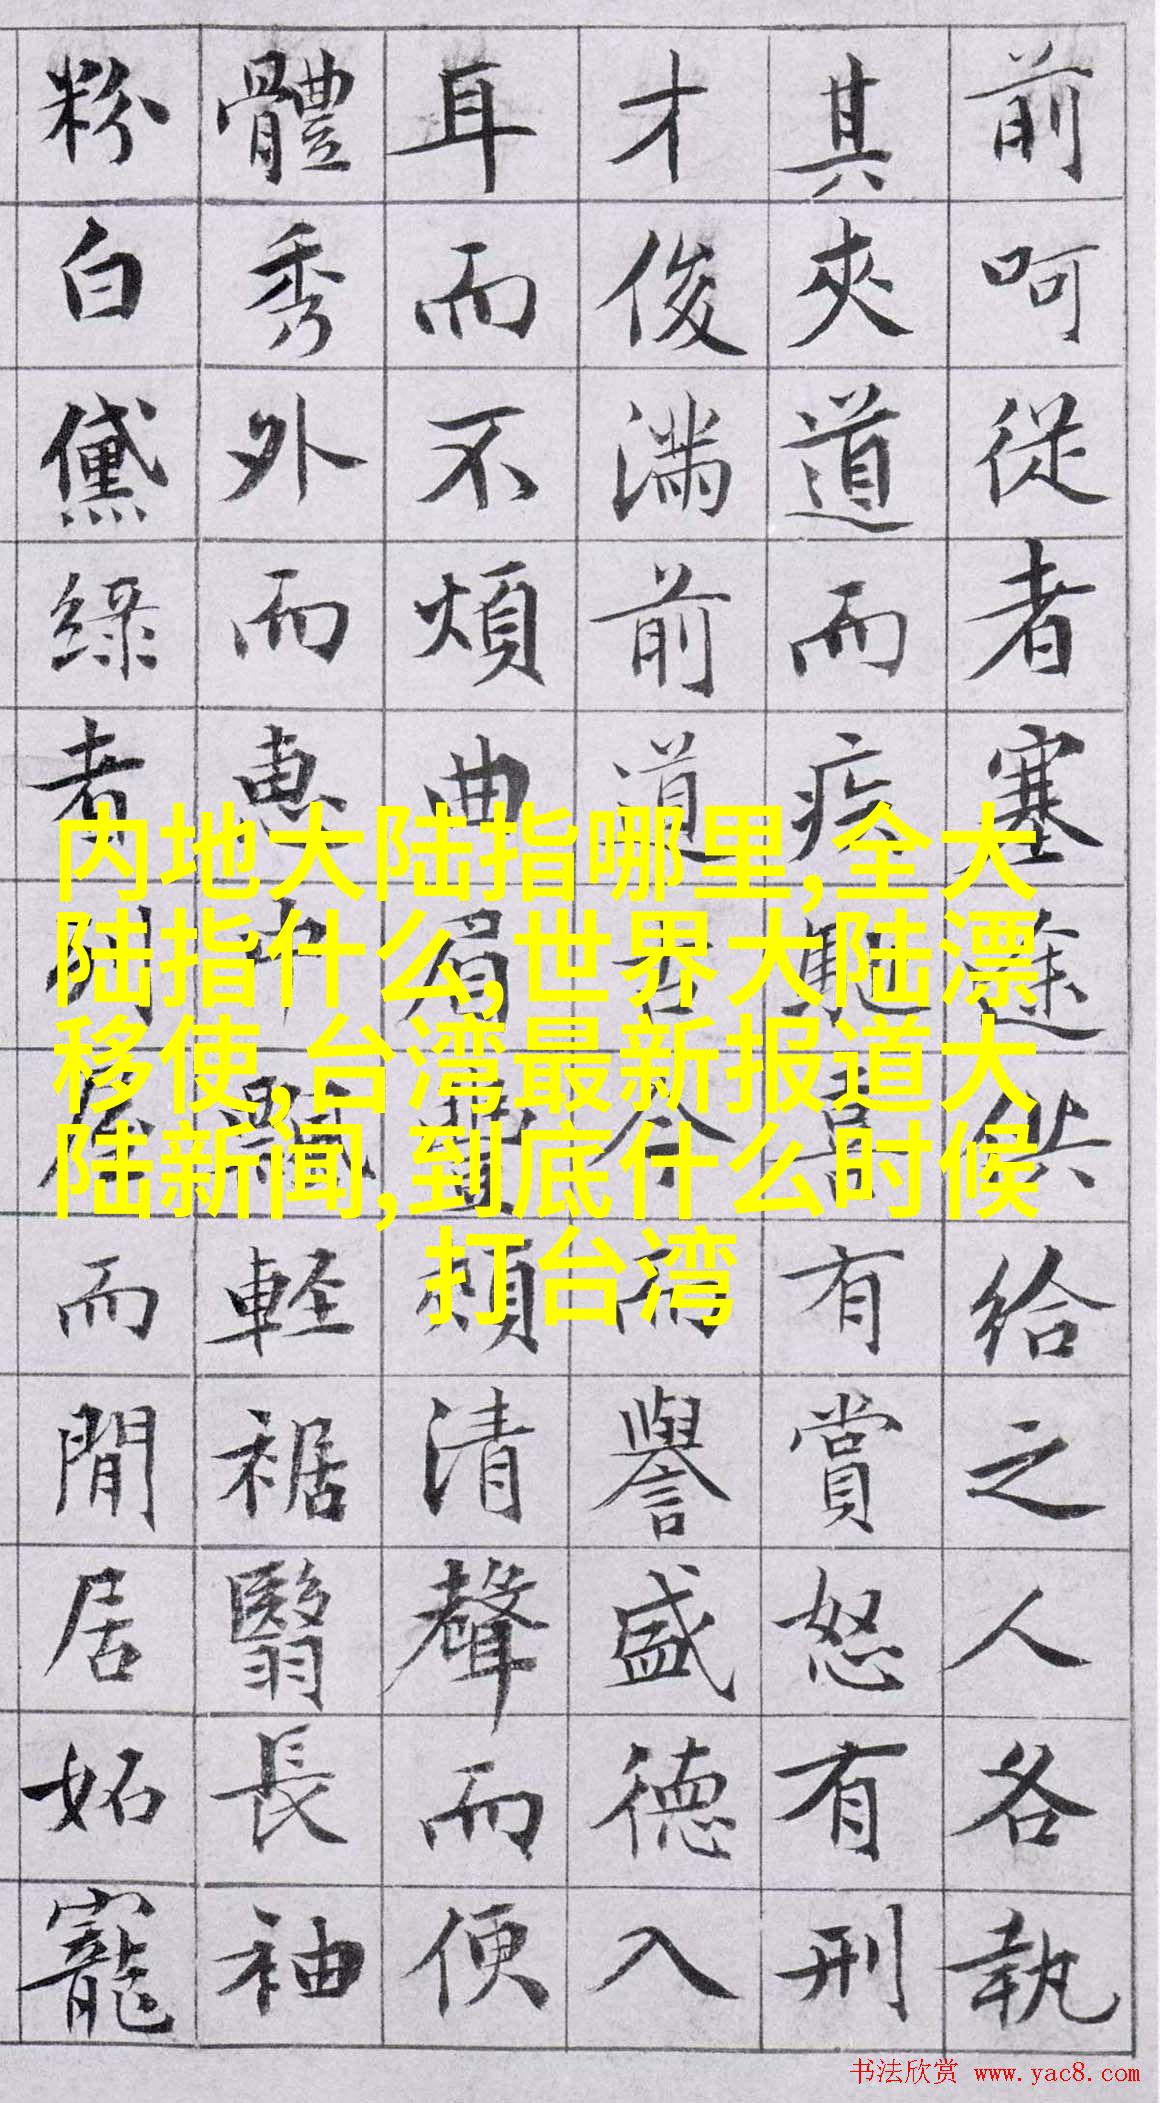 前呵從者塞途供給之人各執
其夾道而疾馳喜有賞怒有刑
才俊滿前道古今而譽盛德入
耳而不煩曲眉豐頰清聲而便
體秀外而惠中飄輕裾翳長袖
粉白黛綠者列屋而閒居妬寵
内地大陆指哪里,全大
陆指什么,世界大陆漂
移使,台湾最新报道大
陆新闻,到底什么时候
打台湾
书法欣赏 www.yac8.com